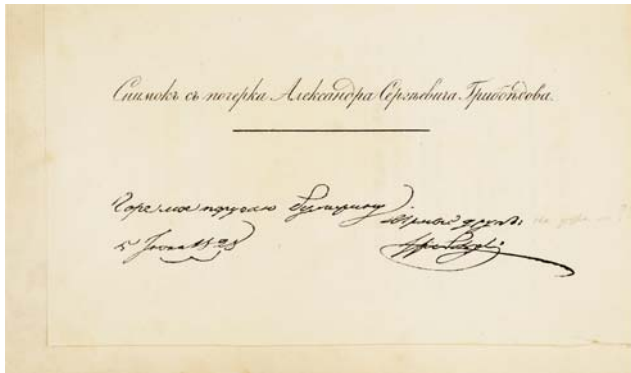 Снимокъ съ почерка Александра Сергѣевича Грибоѣдова.
Горе мое поручаю Булгарину
Вѣрный другъ
5 Іюня 1828
Грибоѣдовъ